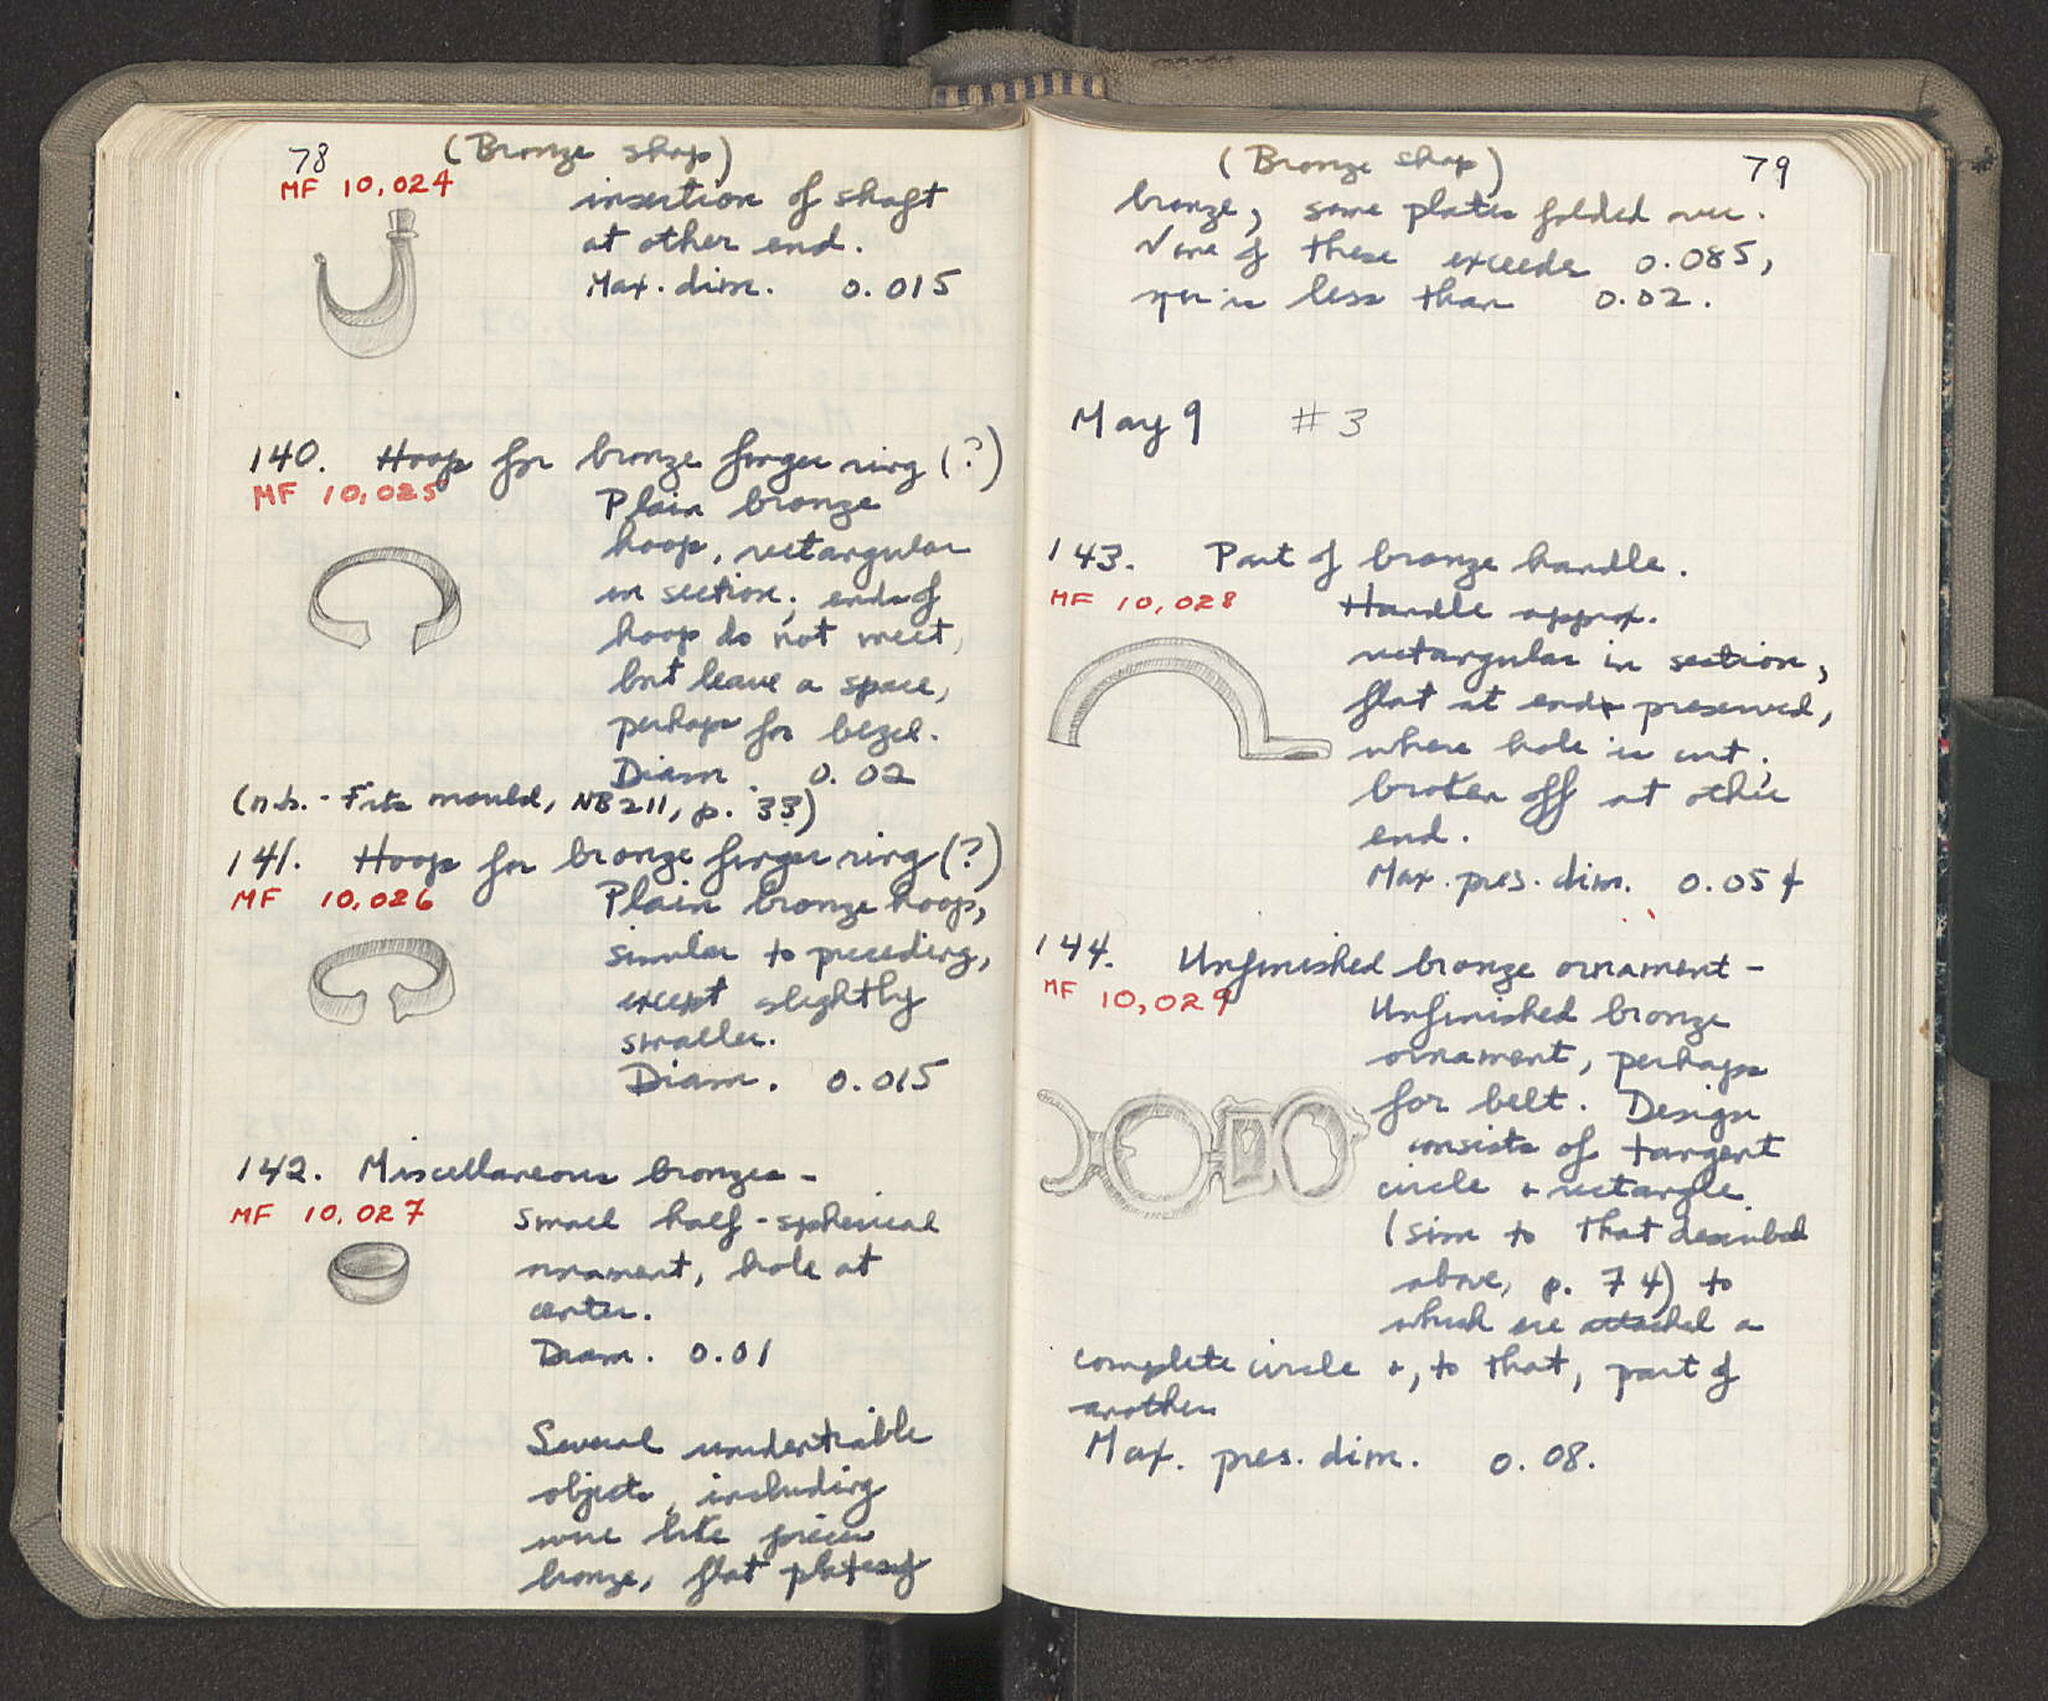 78
(Bronze shop)
MF 10,024
insertion of shaft
at other end.
Max. dim. 0.015
140. Hoop for bronze finger ring (?)
MF 10,025
Plain bronze
hoop, rectangular
in section; ends of
hoop do not meet,
but leave a space,
perhaps for bezel.
Diam. 0.02
(n.b. - Fits mould, NB 211, p. 33)
141. Hoop for bronze finger ring (?)
MF 10,026
Plain bronze hoop,
similar to preceding,
except slightly
smaller.
Diam. 0.015
142. Miscellaneous bronzes -
MF 10,027
Small half-spherical
ornament, hole at
center.
Diam. 0.01
Several unidentifiable
objects, including
wire like pieces
bronze, flat plates of
(Bronze shop)
79
bronze, some plates folded over.
None of these exceeds 0.085,
nor is less than 0.02.
May 9 #3
143. Part of bronze handle.
MF 10,028
Handle approx.
rectangular in section,
flat at end preserved,
where hole is cut;
broken off at other
end.
Max. pres. dim. 0.054
144. Unfinished bronze ornament -
MF 10,029
Unfinished bronze
ornament, perhaps
for belt. Design
consists of tangent
circle + rectangle
(sim to that described
above, p. 74) to
which are attached a
complete circle +, to that, part of
another
Max. pres. dim. 0.08.